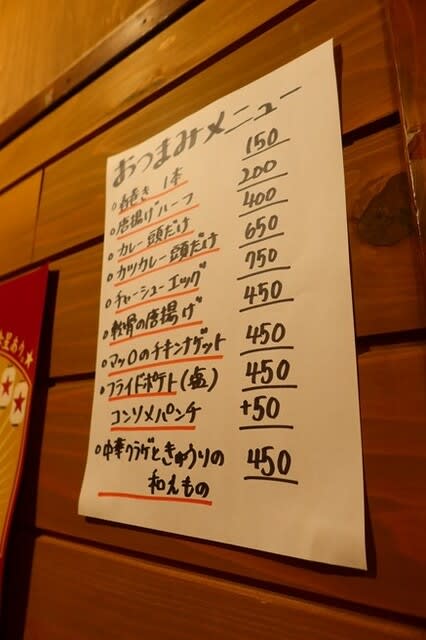 おつまみメニュー
○春巻き 1本 150
○唐揚げハーフ 200
○カレー頭だけ 400
○カツカレー頭だけ 650
○チャーシューエッグ 750
○軟骨の唐揚げ 450
○マッ〇のチキンナゲット 450
○フライドポテト(塩) 450
コンソメパンチ +50
○中華クラゲときゅうりの
和えもの 450